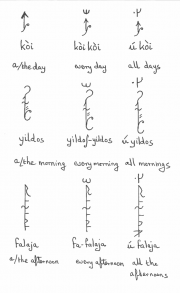 kòi kòi kòi ú kòi
a/the day every day all days
yildos yildos-yildos ú yildos
a/the morning every morning all mornings
falaja fa-falaja ú falaja
a/the afternoon every afternoon all the
afternoons